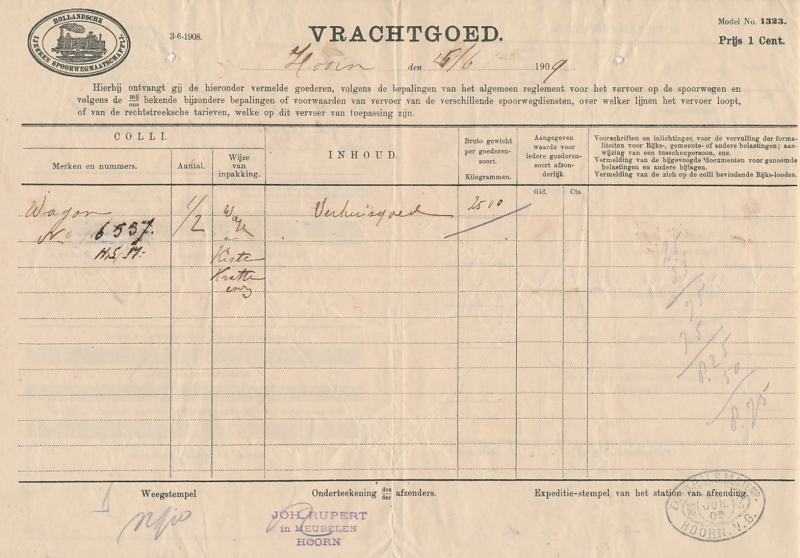 HOLLANDSCHE
IJZEREN SPOORWEGMAATSCHAPPIJ
3-6-1908.
VRACHTGOED.
Model No. 1323.
Prijs 1 Cent.
Hoorn den 15/6 1909.
Hierbij ontvangt gij de hieronder vermelde goederen, volgens de bepalingen van het algemeen reglement voor het vervoer op de spoorwegen en
volgens de mij/ons bekende bijzondere bepalingen of voorwaarden van vervoer van de verschillende spoorwegdiensten, over welker lijnen het vervoer loopt,
of van de rechtstreeksche tarieven, welke op dit vervoer van toepassing zijn.
COLLI.
Merken en nummers.
Aantal.
Wijze
van
inpakking.
INHOUD.
Bruto gewicht
per goederen-
soort.
Kilogrammen.
Aangegeven
waarde voor
iedere goederen-
soort afzon-
derlijk.
Gld. Cts.
Voorschriften en inlichtingen voor de vervulling der forma-
liteiten voor Rijks-, gemeente- of andere belastingen; aan-
wijzing van een tusschenpersoon, enz.
Vermelding van de bijgevoegde documenten voor genoemde
belastingen en andere bijlagen.
Vermelding van de zich op de colli bevindende Rijks-looden.
Wagon 1/2 Verhuisgoed 2500
No 6557.
H.S.M.
Kiste
Kratte
enz
75
75
8.25
50
8.75
Weegstempel
Onderteekening des/der afzenders.
Expeditie-stempel van het station van afzending.
JOH. RUPERT
in MEUBELEN
HOORN
JUN.
HOORN. V.G.